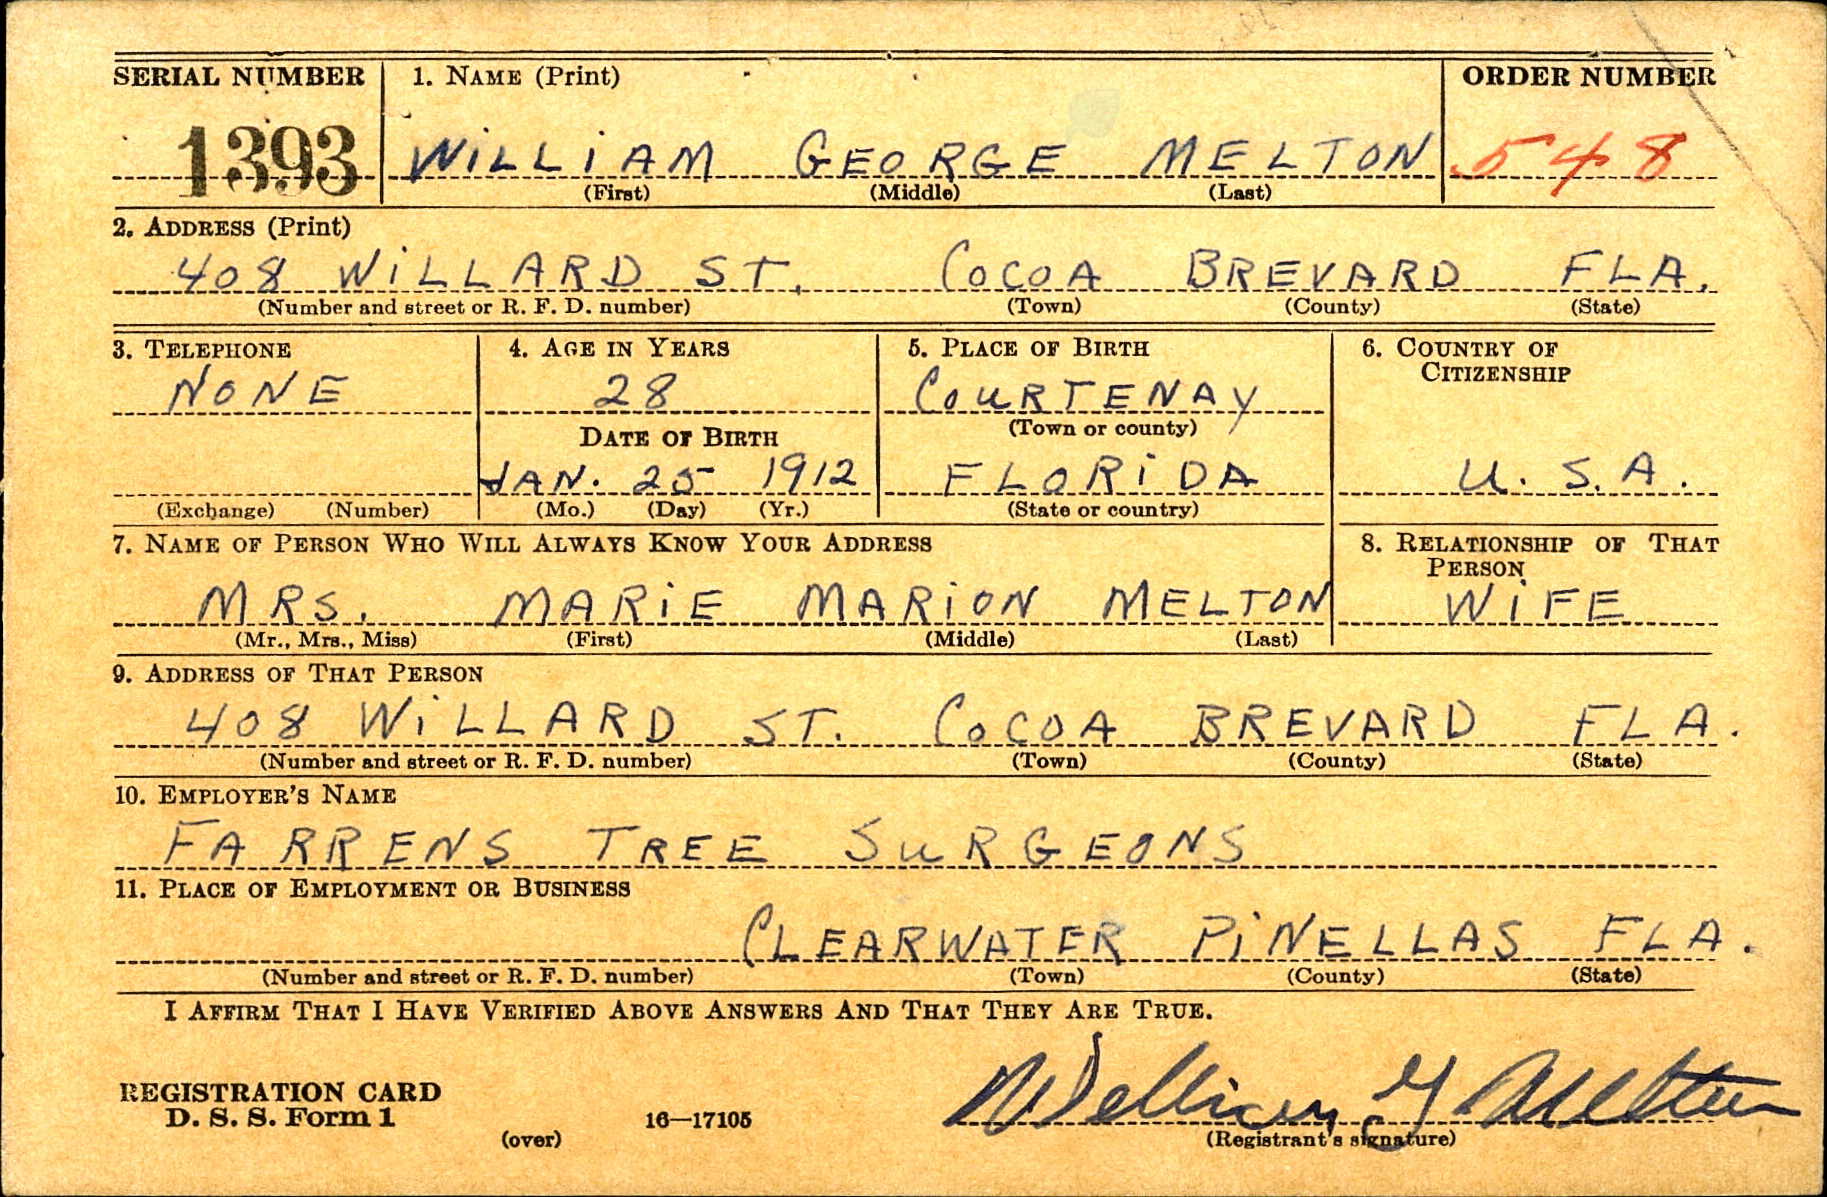 SERIAL NUMBER 1. NAME (Print) ORDER NUMBER
1393 WILLIAM GEORGE MELTON 548
(First) (Middle) (Last)
2. ADDRESS (Print)
408 WILLARD ST. COCOA BREVARD FLA.
(Number and street or R. F. D. number) (Town) (County) (State)
3. TELEPHONE 4. AGE IN YEARS 5. PLACE OF BIRTH 6. COUNTRY OF
CITIZENSHIP
NONE 28 COURTENAY
DATE OF BIRTH (Town or county)
JAN. 25 1912 FLORIDA U. S. A.
(Exchange) (Number) (Mo.) (Day) (Yr.) (State or country)
7. NAME OF PERSON WHO WILL ALWAYS KNOW YOUR ADDRESS 8. RELATIONSHIP OF THAT
PERSON
MRS. MARIE MARION MELTON WIFE
(Mr., Mrs., Miss) (First) (Middle) (Last)
9. ADDRESS OF THAT PERSON
408 WILLARD ST. COCOA BREVARD FLA.
(Number and street or R. F. D. number) (Town) (County) (State)
10. EMPLOYER'S NAME
FARRENS TREE SURGEONS
11. PLACE OF EMPLOYMENT OR BUSINESS
CLEARWATER PINELLAS FLA.
(Number and street or R. F. D. number) (Town) (County) (State)
I AFFIRM THAT I HAVE VERIFIED ABOVE ANSWERS AND THAT THEY ARE TRUE.
REGISTRATION CARD
D. S. S. Form 1 16—17105 William G Melton
(over) (Registrant's signature)